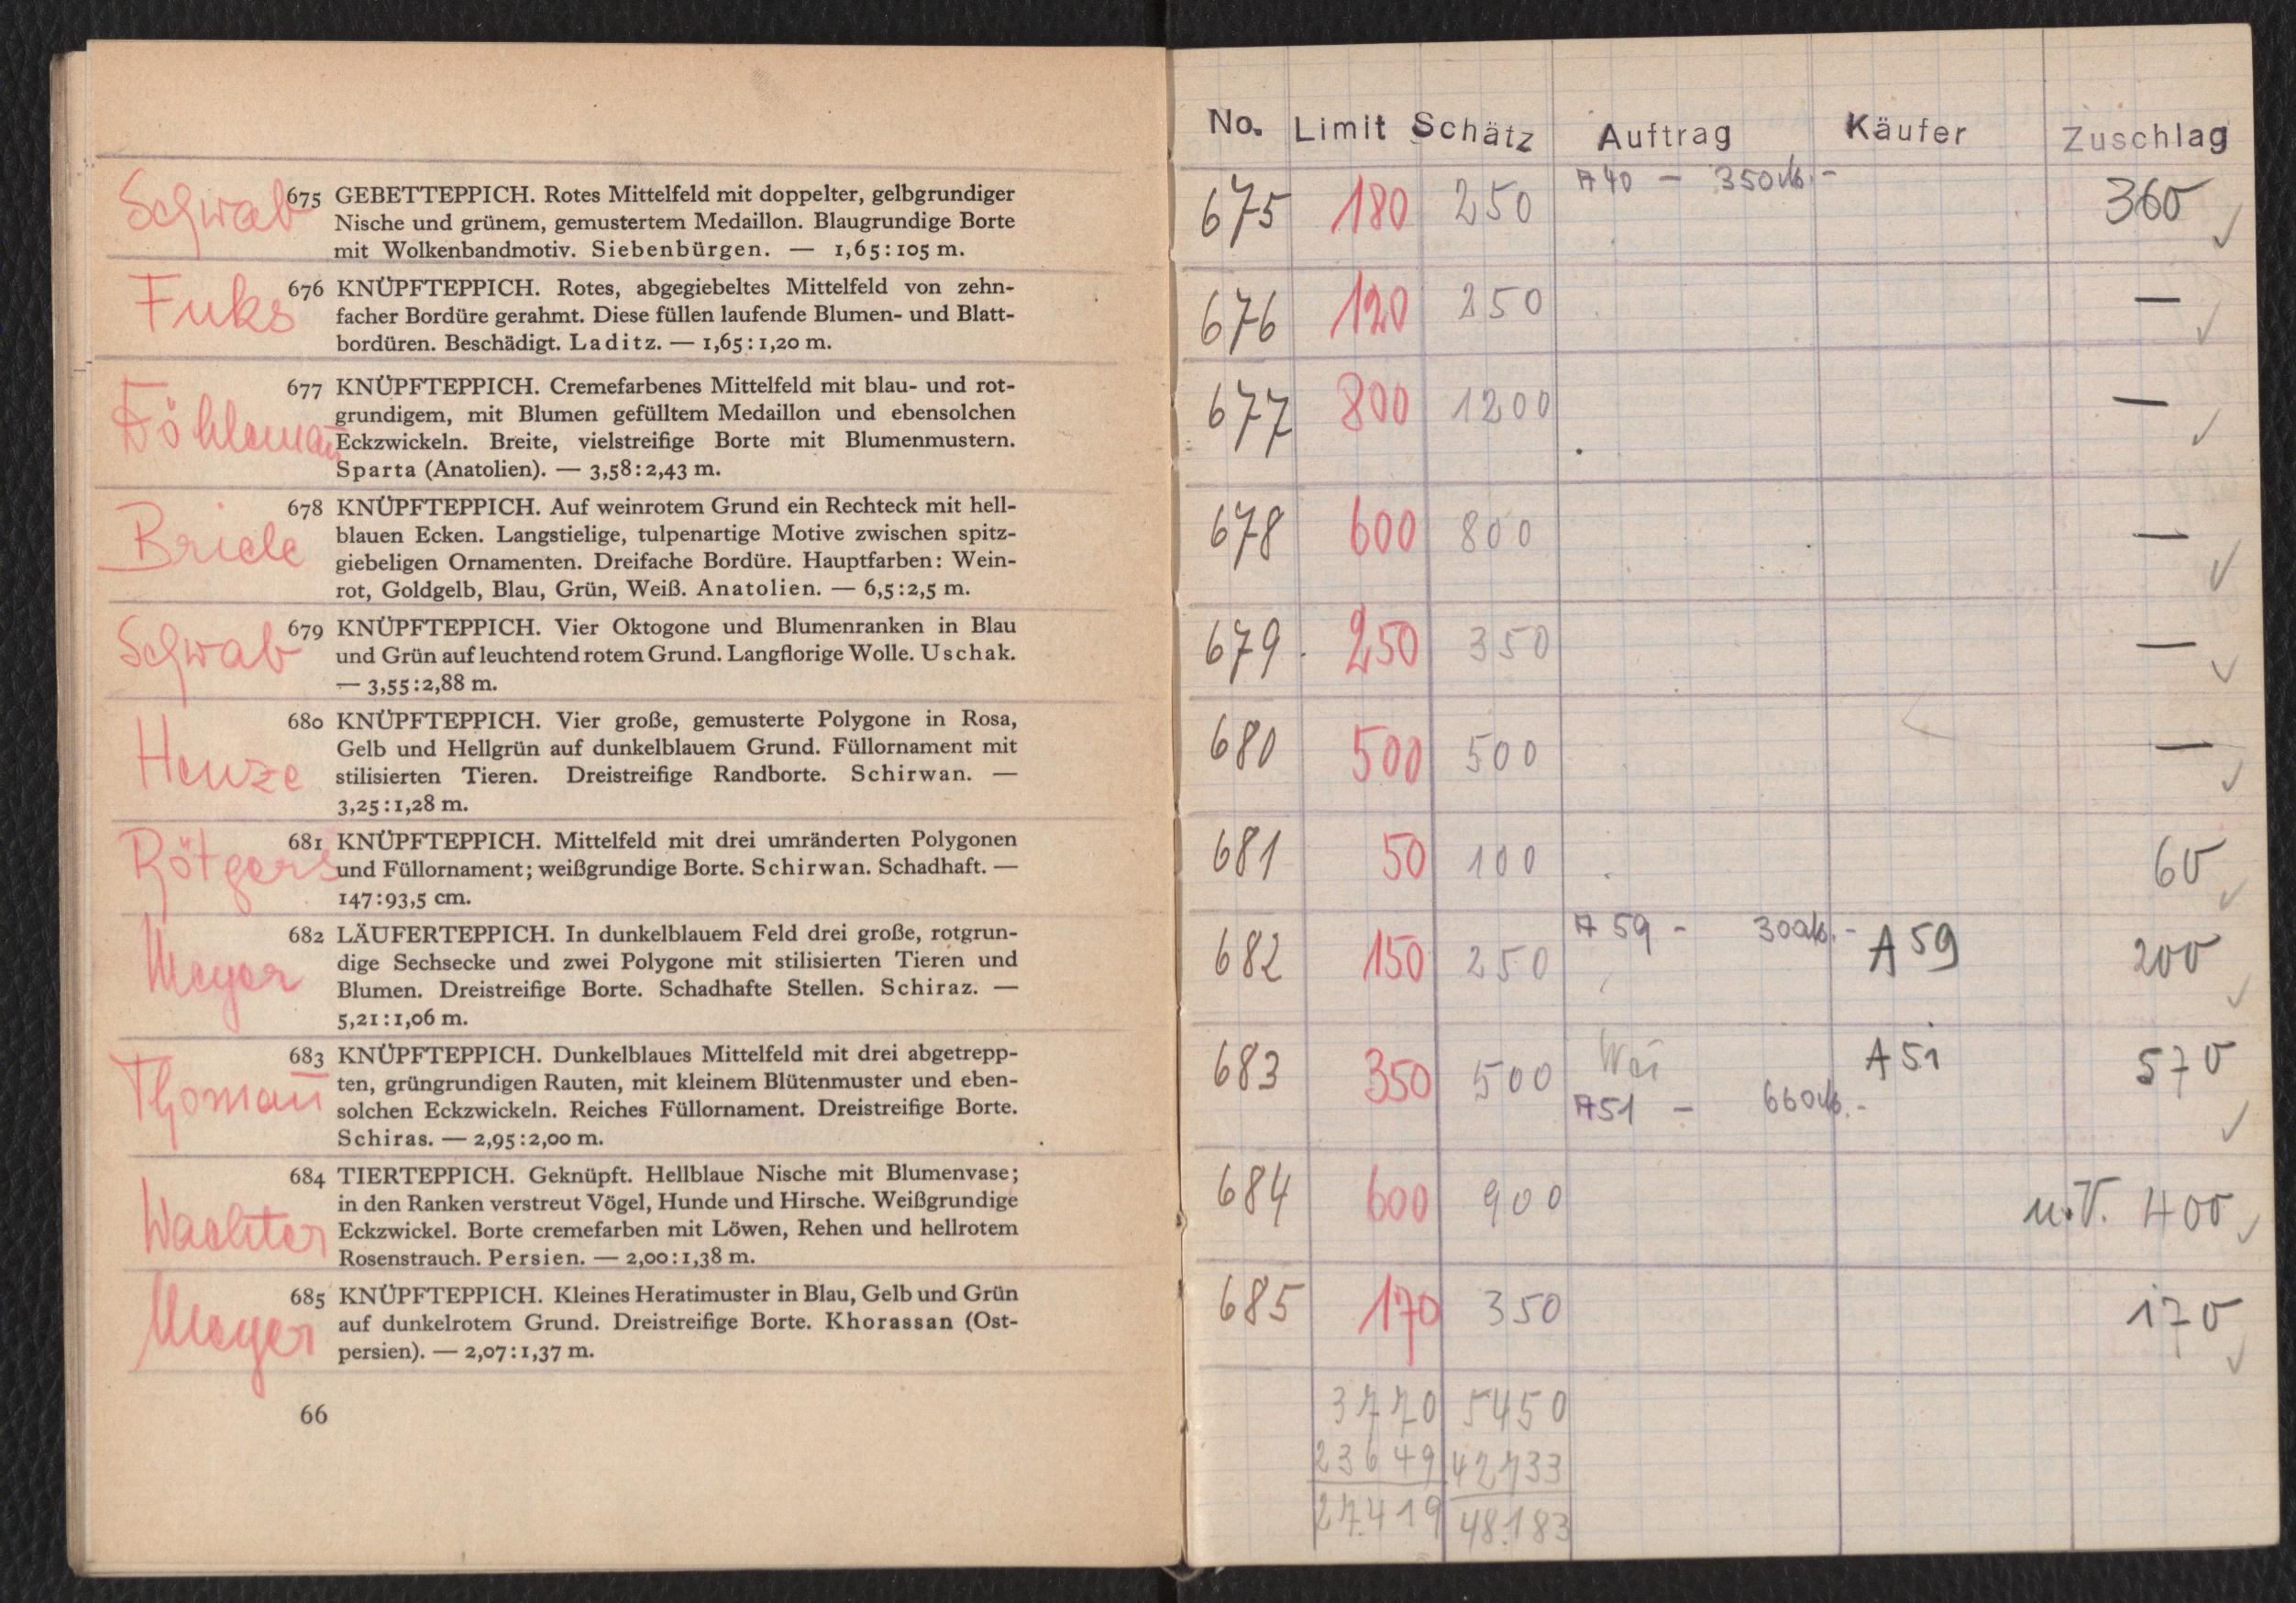 Schwab
675 GEBETTEPPICH. Rotes Mittelfeld mit doppelter, gelbgrundiger
Nische und grünem, gemustertem Medaillon. Blaugrundige Borte
mit Wolkenbandmotiv. Siebenbürgen. — 1,65:105 m.
Fuks
676 KNÜPFTEPPICH. Rotes, abgegiebeltes Mittelfeld von zehn-
facher Bordüre gerahmt. Diese füllen laufende Blumen- und Blatt-
bordüren. Beschädigt. Laditz. — 1,65:1,20 m.
677 KNÜPFTEPPICH. Cremefarbenes Mittelfeld mit blau- und rot-
grundigem, mit Blumen gefülltem Medaillon und ebensolchen
Eckzwickeln. Breite, vielstreifige Borte mit Blumenmustern.
Sparta (Anatolien). — 3,58:2,43 m.
Briele
678 KNÜPFTEPPICH. Auf weinrotem Grund ein Rechteck mit hell-
blauen Ecken. Langstielige, tulpenartige Motive zwischen spitz-
giebeligen Ornamenten. Dreifache Bordüre. Hauptfarben: Wein-
rot, Goldgelb, Blau, Grün, Weiß. Anatolien. — 6,5:2,5 m.
Schwab
679 KNÜPFTEPPICH. Vier Oktogone und Blumenranken in Blau
und Grün auf leuchtend rotem Grund. Langflorige Wolle. Uschak.
— 3,55:2,88 m.
Henze
680 KNÜPFTEPPICH. Vier große, gemusterte Polygone in Rosa,
Gelb und Hellgrün auf dunkelblauem Grund. Füllornament mit
stilisierten Tieren. Dreistreifige Randborte. Schirwan. —
3,25:1,28 m.
Rötgers
681 KNÜPFTEPPICH. Mittelfeld mit drei umränderten Polygonen
und Füllornament; weißgrundige Borte. Schirwan. Schadhaft. —
147:93,5 cm.
Meyer
682 LÄUFERTEPPICH. In dunkelblauem Feld drei große, rotgrun-
dige Sechsecke und zwei Polygone mit stilisierten Tieren und
Blumen. Dreistreifige Borte. Schadhafte Stellen. Schiraz. —
5,21:1,06 m.
Thomañ
683 KNÜPFTEPPICH. Dunkelblaues Mittelfeld mit drei abgetrepp-
ten, grüngrundigen Rauten, mit kleinem Blütenmuster und eben-
solchen Eckzwickeln. Reiches Füllornament. Dreistreifige Borte.
Schiras. — 2,95:2,00 m.
Wachter
684 TIERTEPPICH. Geknüpft. Hellblaue Nische mit Blumenvase;
in den Ranken verstreut Vögel, Hunde und Hirsche. Weißgrundige
Eckzwickel. Borte cremefarben mit Löwen, Rehen und hellrotem
Rosenstrauch. Persien. — 2,00:1,38 m.
Meyer
685 KNÜPFTEPPICH. Kleines Heratimuster in Blau, Gelb und Grün
auf dunkelrotem Grund. Dreistreifige Borte. Khorassan (Ost-
persien). — 2,07:1,37 m.
66
No. Limit Schätz Auftrag Käufer Zuschlag
A 40 – 350 M.–
675 180 250 360 ✓
676 120 250 — ✓
677 800 1200 — ✓
678 600 800 — ✓
679 250 350 — ✓
680 500 500 — ✓
681 50 100 60 ✓
682 150 250 A 59 – 300 M.– A 59 200 ✓
683 350 500 A 51 570 ✓
A 51 – 660 M.–
684 600 900 u.V. 400 ✓
685 170 350 170 ✓
3770 5450
23649 42733
27.419 48.183